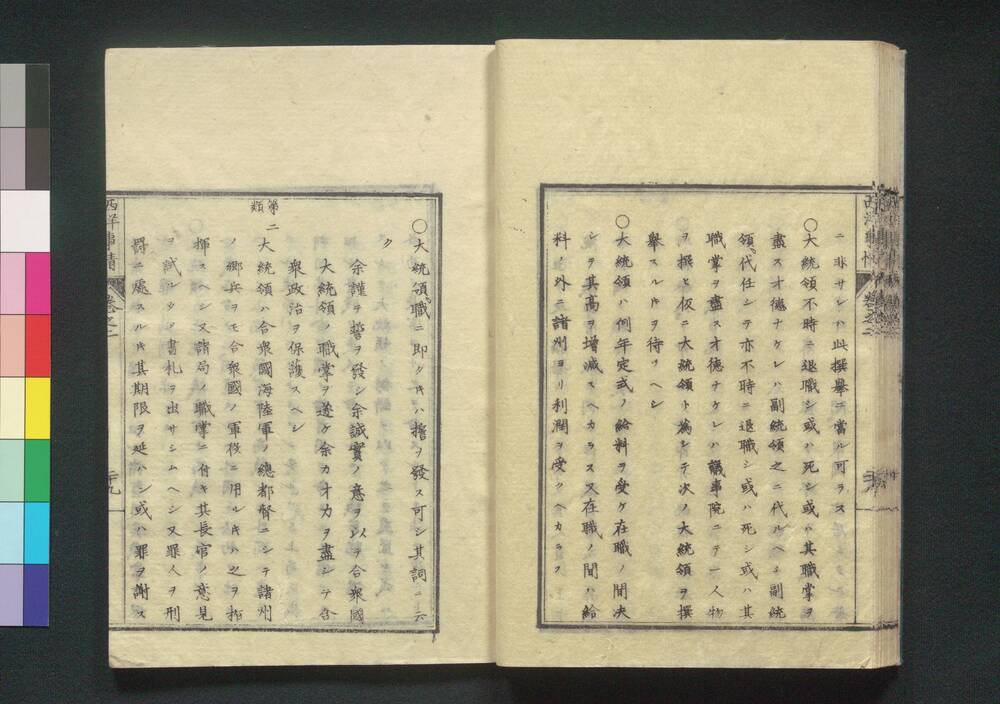 ニ非サレハ此撰擧ニ當ル可ラス
〇大統領不時ニ退職シ或ハ死シ或ハ其職掌ヲ
盡ス才德ナケレハ副統領之ニ代ルヘシ副統
領代任シテ亦不時ニ退職シ或ハ死シ或ハ其
職掌ヲ盡ス才德ナケレハ議事院ニテ一人物
ヲ撰ヒ仮ニ大統領ト爲シテ次ノ大統領ヲ撰
擧スルヰヲ待ツヘシ
〇大統領ハ例年定式ノ給料ヲ受ケ在職ノ間决
シテ其高ヲ增減スヘカラス又在職ノ間ハ給
料ノ外ニ諸州ヨリ利潤ヲ受クヘカラス
西洋事情
卷之二
〇大統領職ニ卽クキハ擔ヲ發ス可シ其詞ニ云
ク
余謹テ誓ヲ發シ余誠實ノ意ヲ以テ合衆國
大統領ノ職掌ヲ遂ケ余カ才力ヲ盡シテ合
衆政治ヲ保護スヘシ
第二類
大統領ハ合衆國海陸軍ノ總都督ニシテ諸州
ノ鄕兵ヲモ合衆國ノ軍役ニ用ルキハ之ヲ指
揮スヘシ又諸局ノ職掌ニ付キ其長官ノ意見
ヲ認タル書札ヲ出サシムヘシ又罪人ヲ刑
罸ニ處スルキ其期限ヲ延ハシ或ハ罪ヲ謝ス
西洋事情
卷之二
二十九